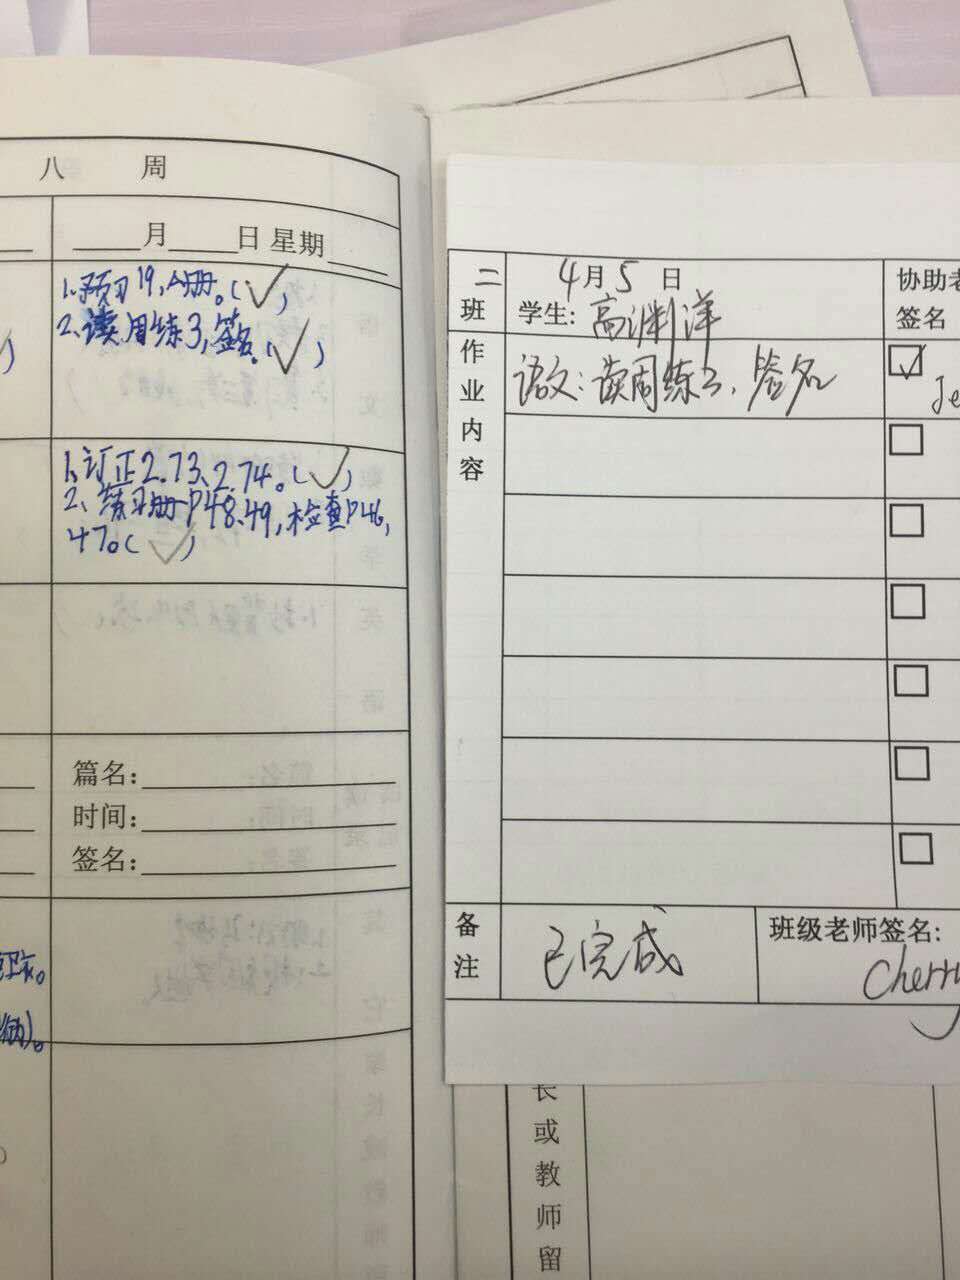 八 周
月 日 星期
1.预习19,A册。(✓)
2.读周练3,签名。(✓)
1.订正2.73、2.74。(✓)
2.练习册P48.49,检查P46,
47。(✓)
篇名:
时间:
签名:
二班
4月5日
学生:高渊洋
协助老
签名
作业内容
语文:读周练3、签名
✓
备注
已完成
班级老师签名:
Cherry
长或教师留